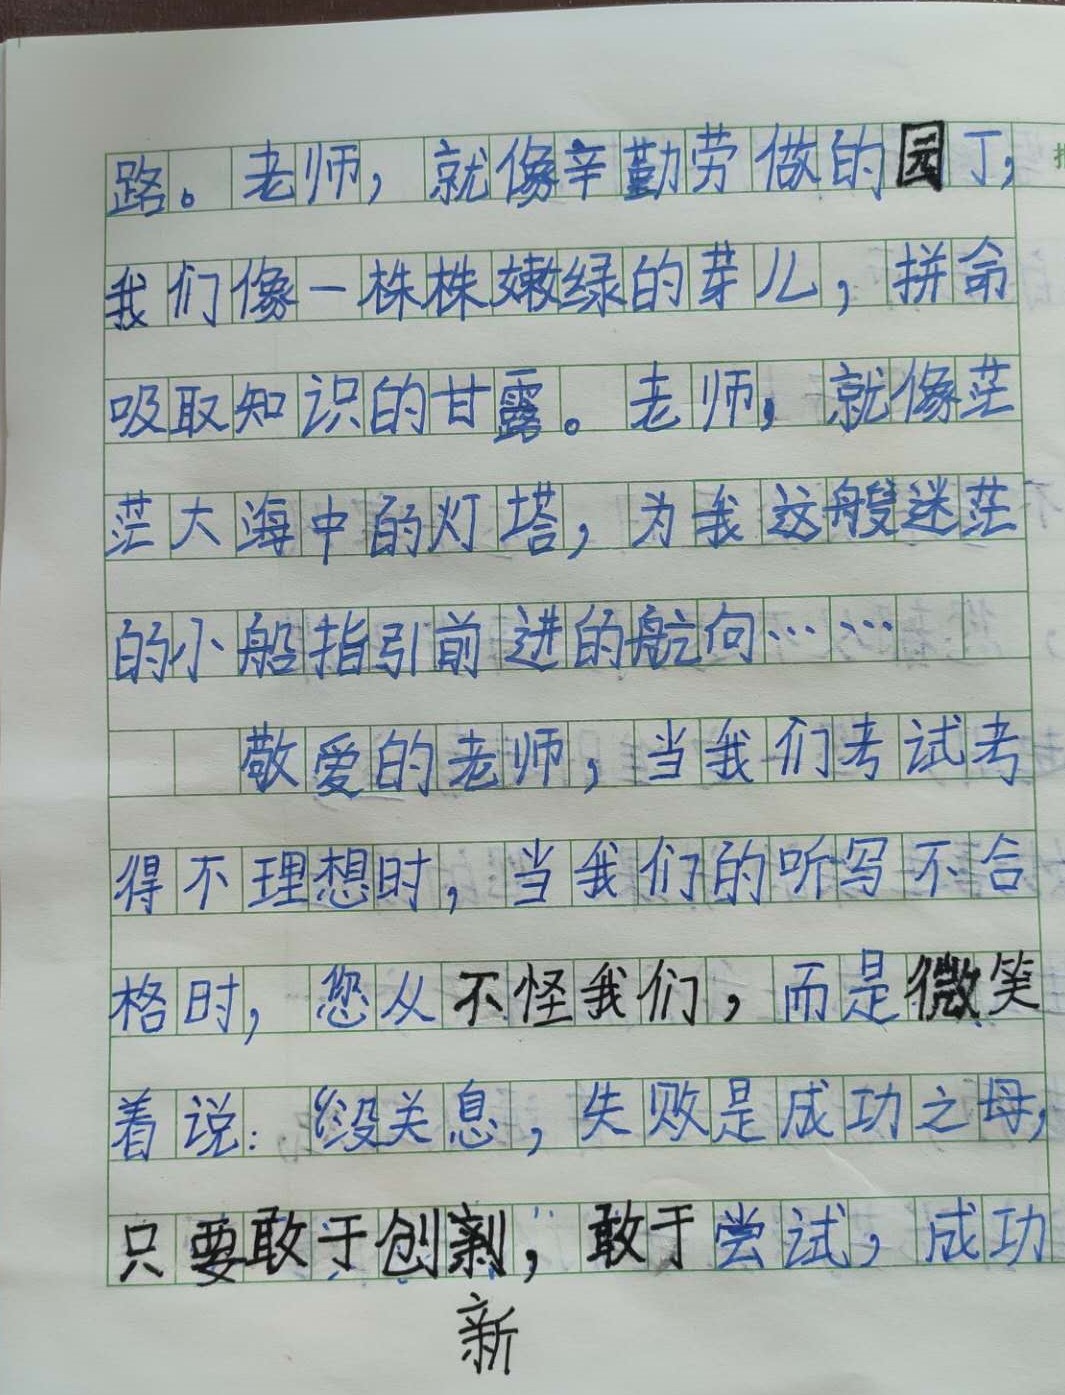 路。老师，就像辛勤劳做的园丁，
我们像一株株嫩绿的芽儿，拼命
吸取知识的甘露。老师，就像茫
茫大海中的灯塔，为我这艘迷茫
的小船指引前进的航向……
敬爱的老师，当我们考试考
得不理想时，当我们的听写不合
格时，您从不怪我们，而是微笑
着说：“没关息，失败是成功之母，
只要敢于创新，敢于尝试，成功
新